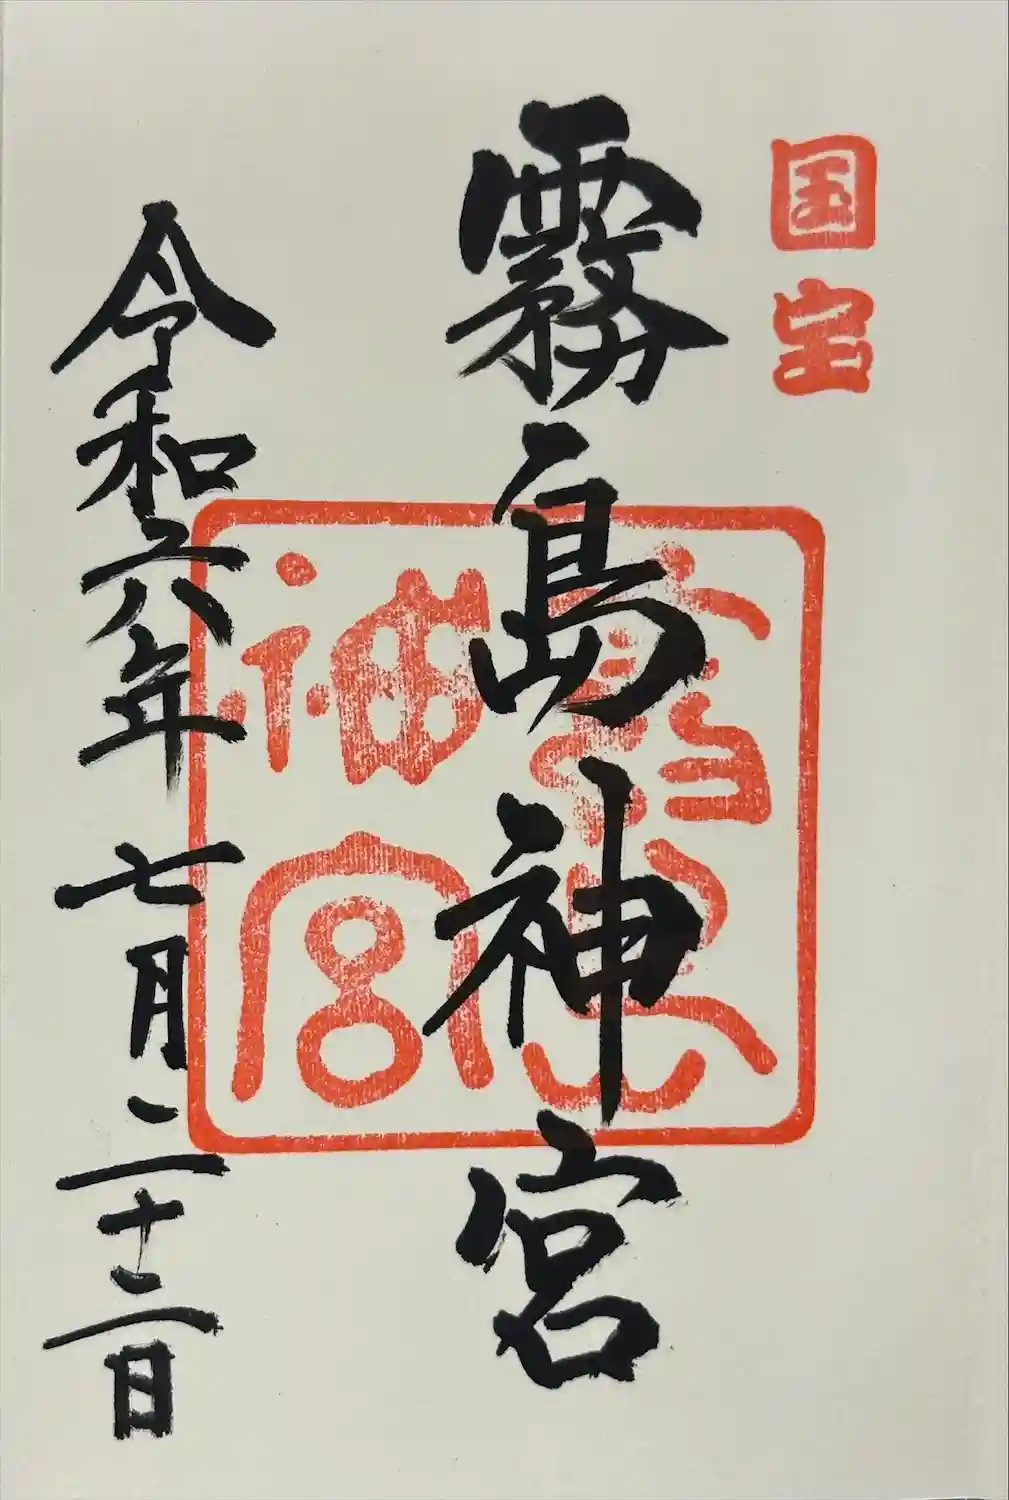 国宝
霧島神宮
霧島神宮
令和六年七月二十二日